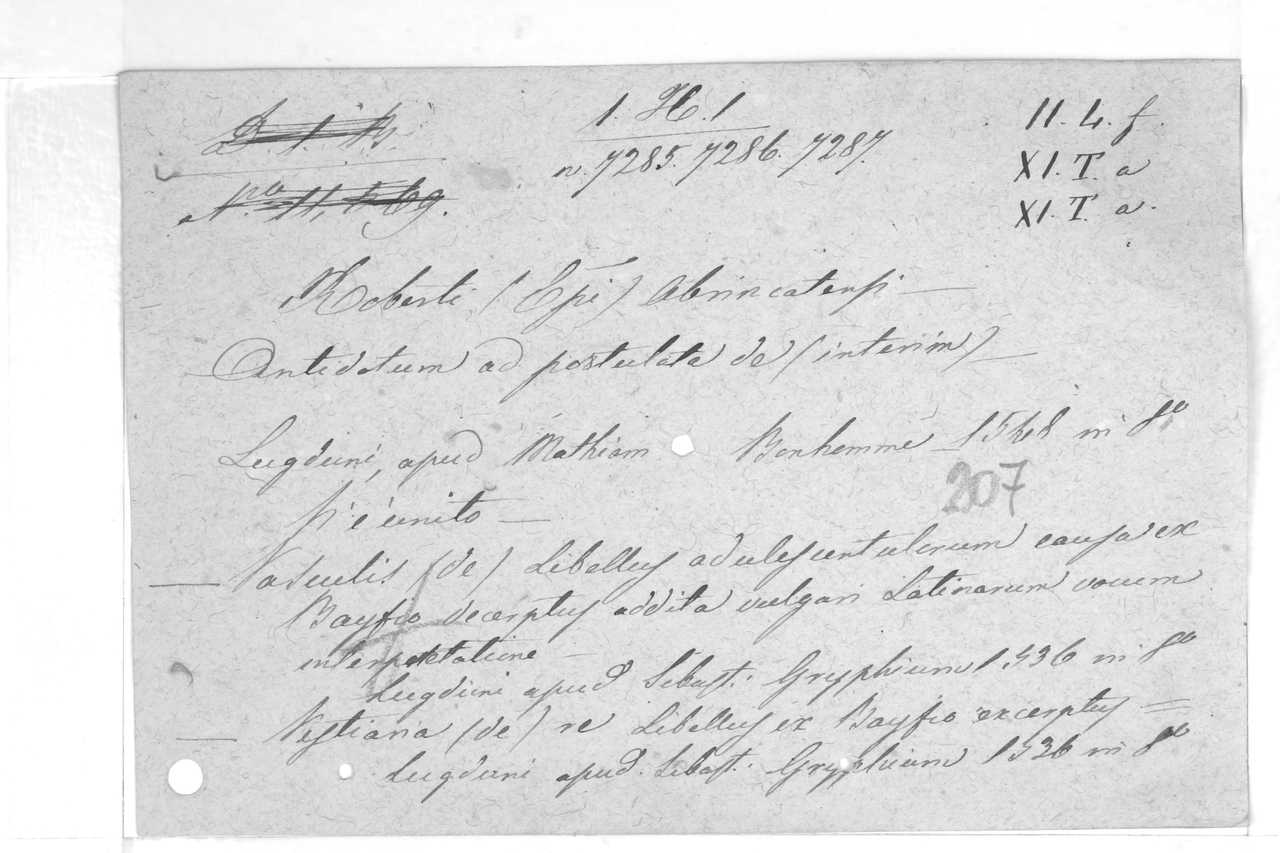 D. 1. B.
1. H. 1
11. 4. f.
N.ro 11,
n. 7285. 7286. 7287.
XI. T. a
XI. T. a.
Roberti (Epi) Abrincatensi —
Antidotum ad postulata de (interim) —
Lugduni, apud Mathiam Bonhomme 1548 in 8º
207
si è unito —
— Vasculis (de) Libellus adulescentulorum causa ex
Bayfio decerptus addita vulgari Latinarum vocum
interpretatione —
Lugduni apud Sebast: Gryphium 1536 in 8º
— Vestiaria (de) re Libellus ex Bayfio excerptus =
Lugduni apud Sebast: Gryphium 1536 in 8º